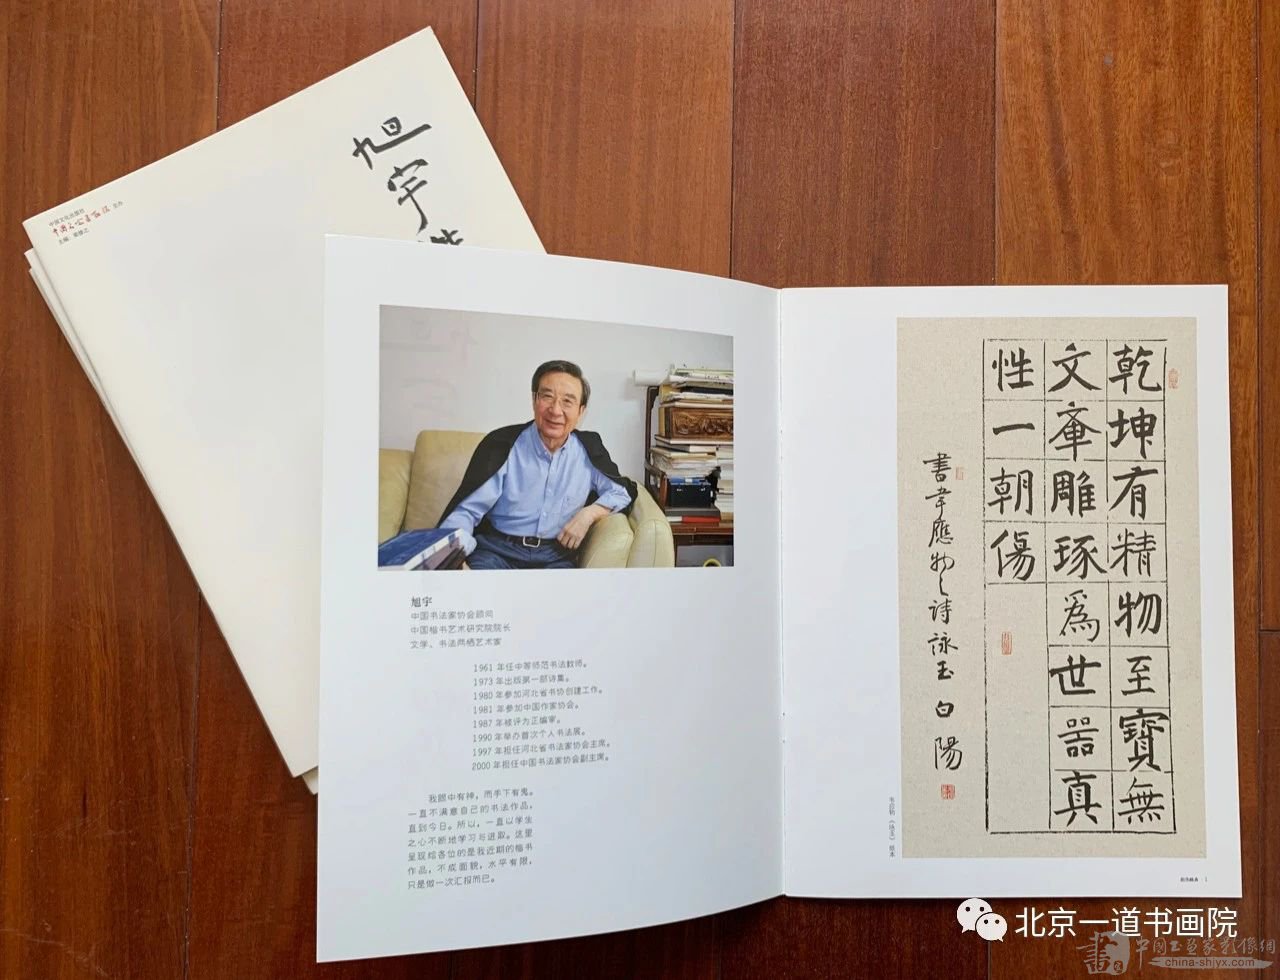 旭宇
中国文化出版社
主办
旭宇
中国书法家协会顾问
中国楷书艺术研究院院长
文学、书法两栖艺术家
1961 年任中等师范书法教师。
1973 年出版第一部诗集。
1980 年参加河北省书协创建工作。
1981 年参加中国作家协会。
1987 年被评为正编审。
1990 年举办首次个人书法展。
1997 年担任河北省书法家协会主席。
2000 年担任中国书法家协会副主席。
我眼中有神，而手下有鬼。
一直不满意自己的书法作品，
直到今日。所以，一直以学生
之心不断地学习与进取。这里
呈现给各位的是我近期的楷书
作品，不成面貌，水平有限，
只是做一次汇报而已。
乾坤有精物至寶無
文章雕琢為世器真
性一朝傷
書韋應物之詩詠玉 白陽
韦应物《咏玉》纸本
北京一道书画院
china-shjyx.com